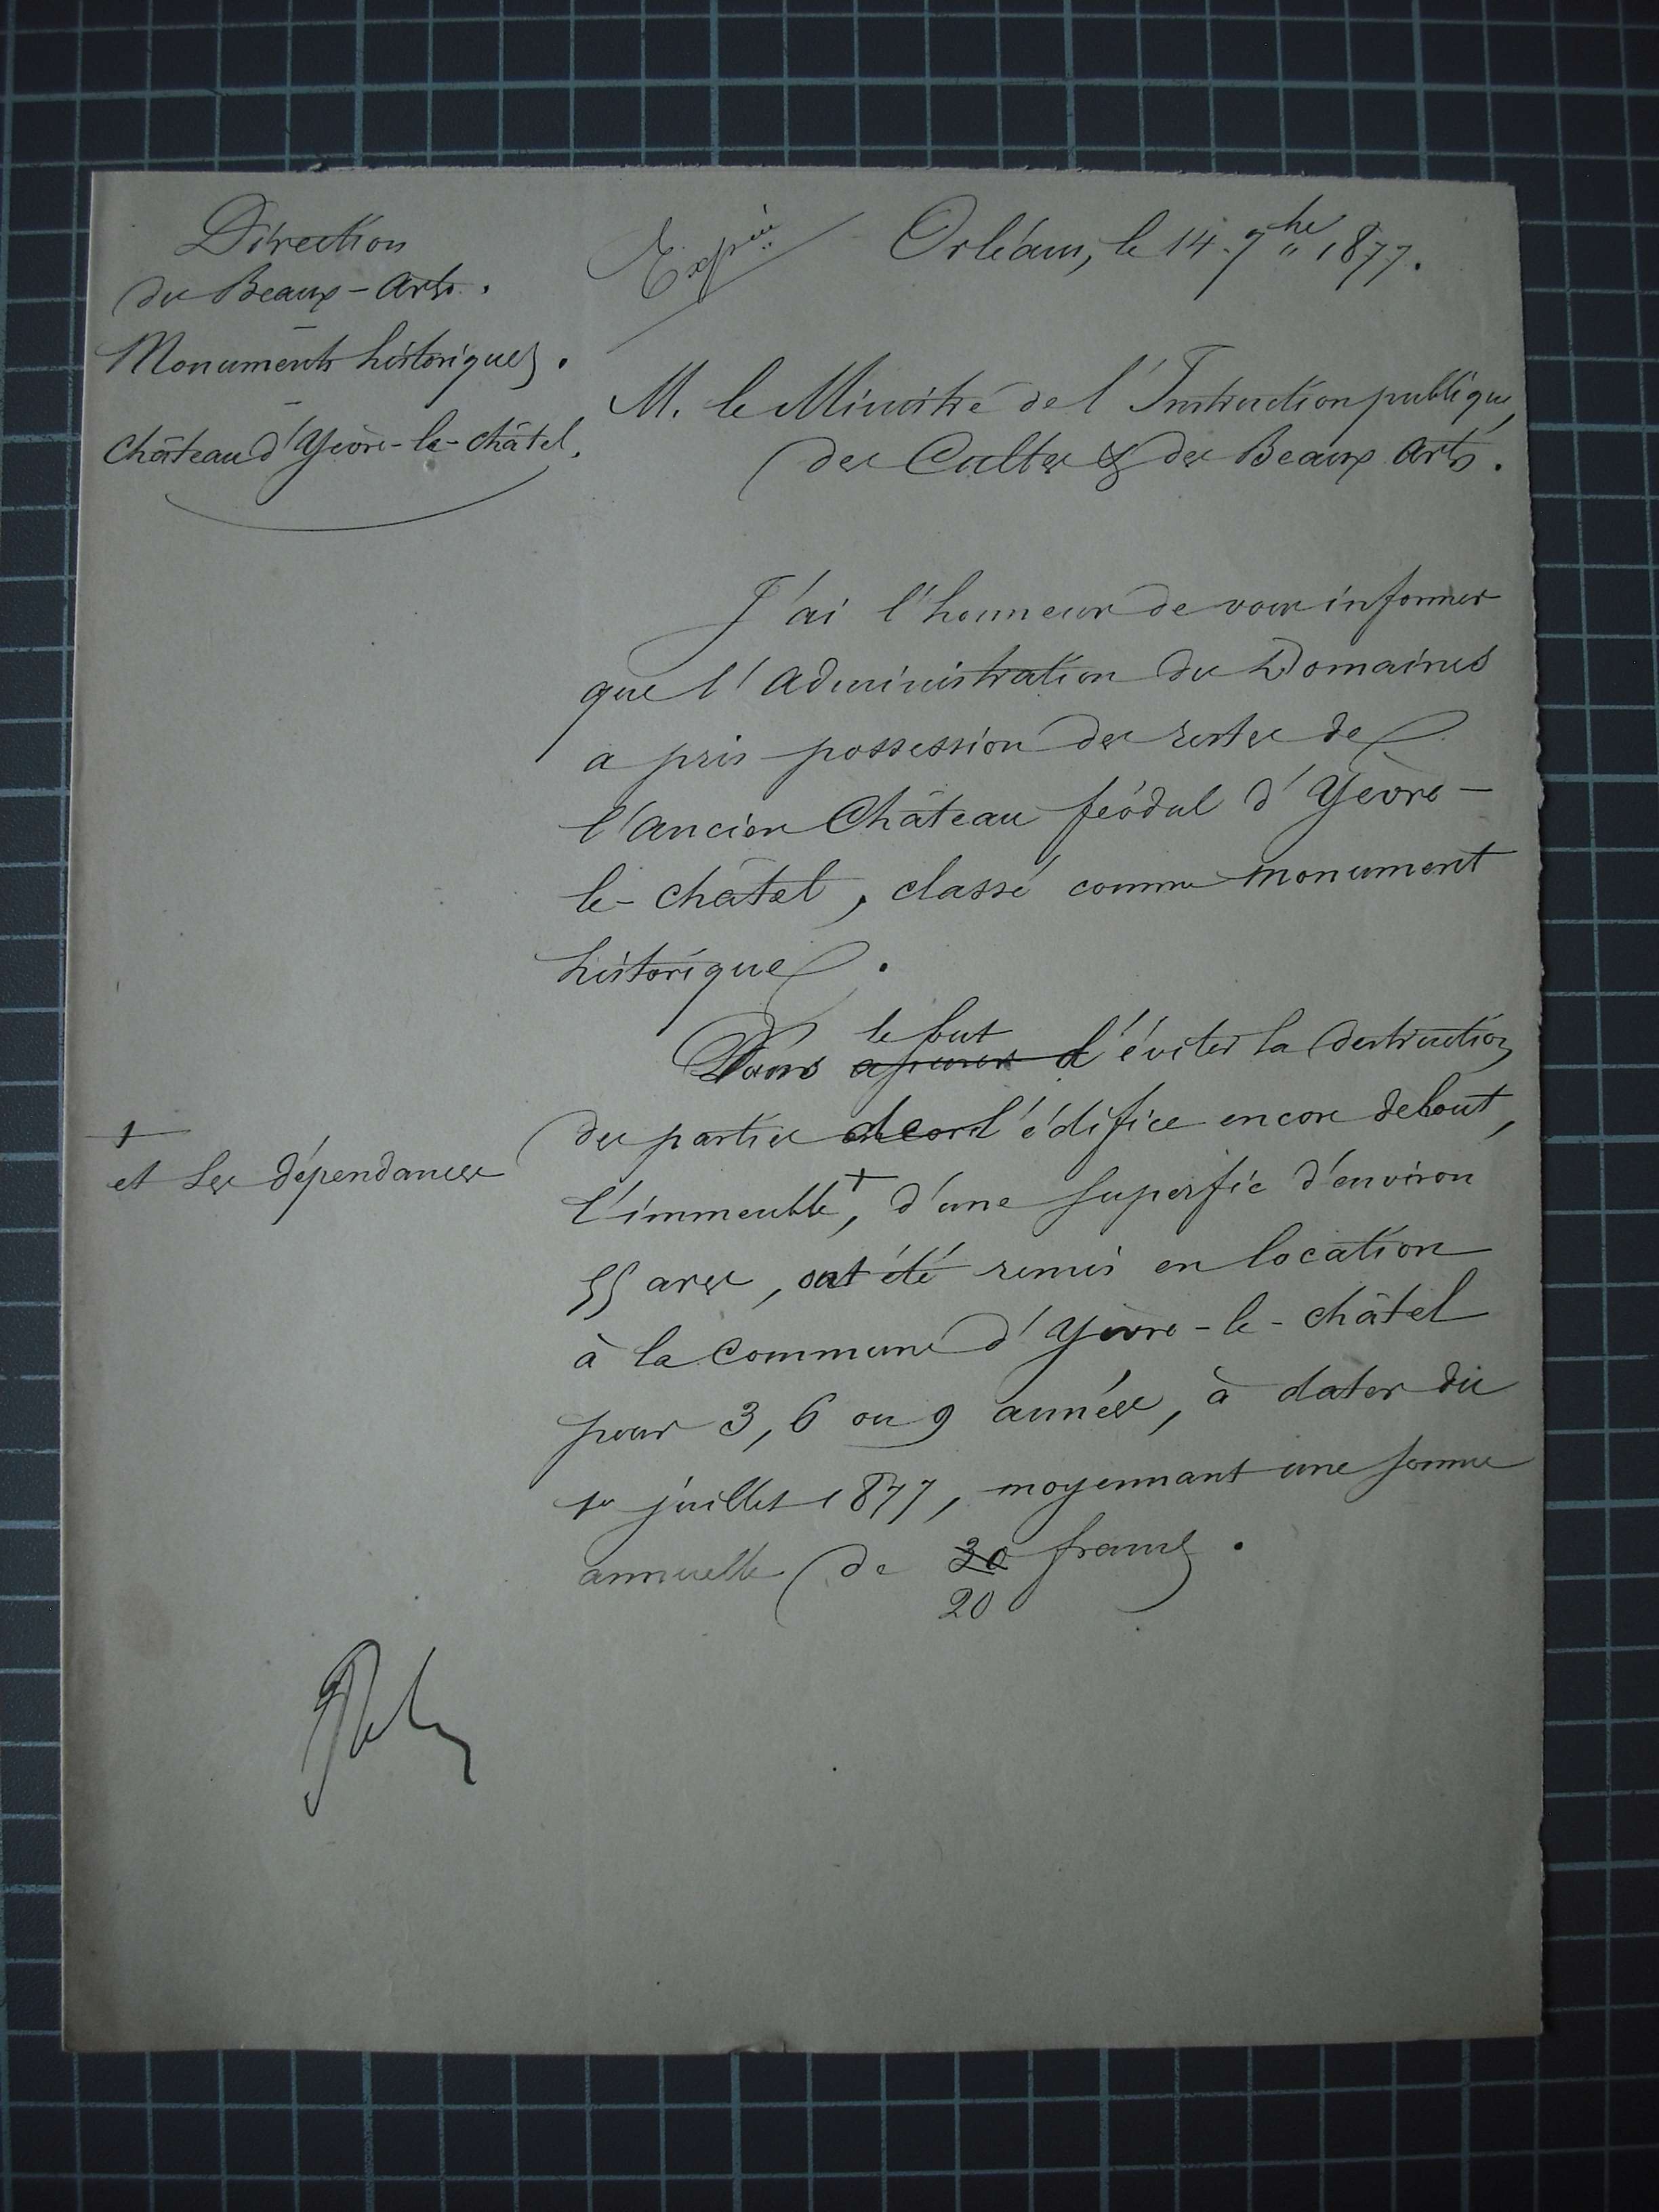 Direction
des Beaux-Arts.
Monuments historiques.
Château d'Yèvre-le-châtel.
Expiée
Orléans, le 14 7bre 1877.
M. le Ministre de l'Instruction publique,
des Cultes & des Beaux Arts.
J'ai l'honneur de vous informer
que l'Administration des Domaines
a pris possession des restes de
l'ancien Château féodal d'Yèvre-
le-châtel, classé comme monument
historique.
le but
Dans d'éviter la destruction
des parties de l'édifice encore debout,
+
et ses dépendances
l'immeuble +, d'une superficie d'environ
55 ares, ont été remis en location
à la Commune d'Yèvre-le-châtel
pour 3, 6 ou 9 années, à dater du
1er juillet 1877, moyennant une somme
annuelle de 30 francs.
20